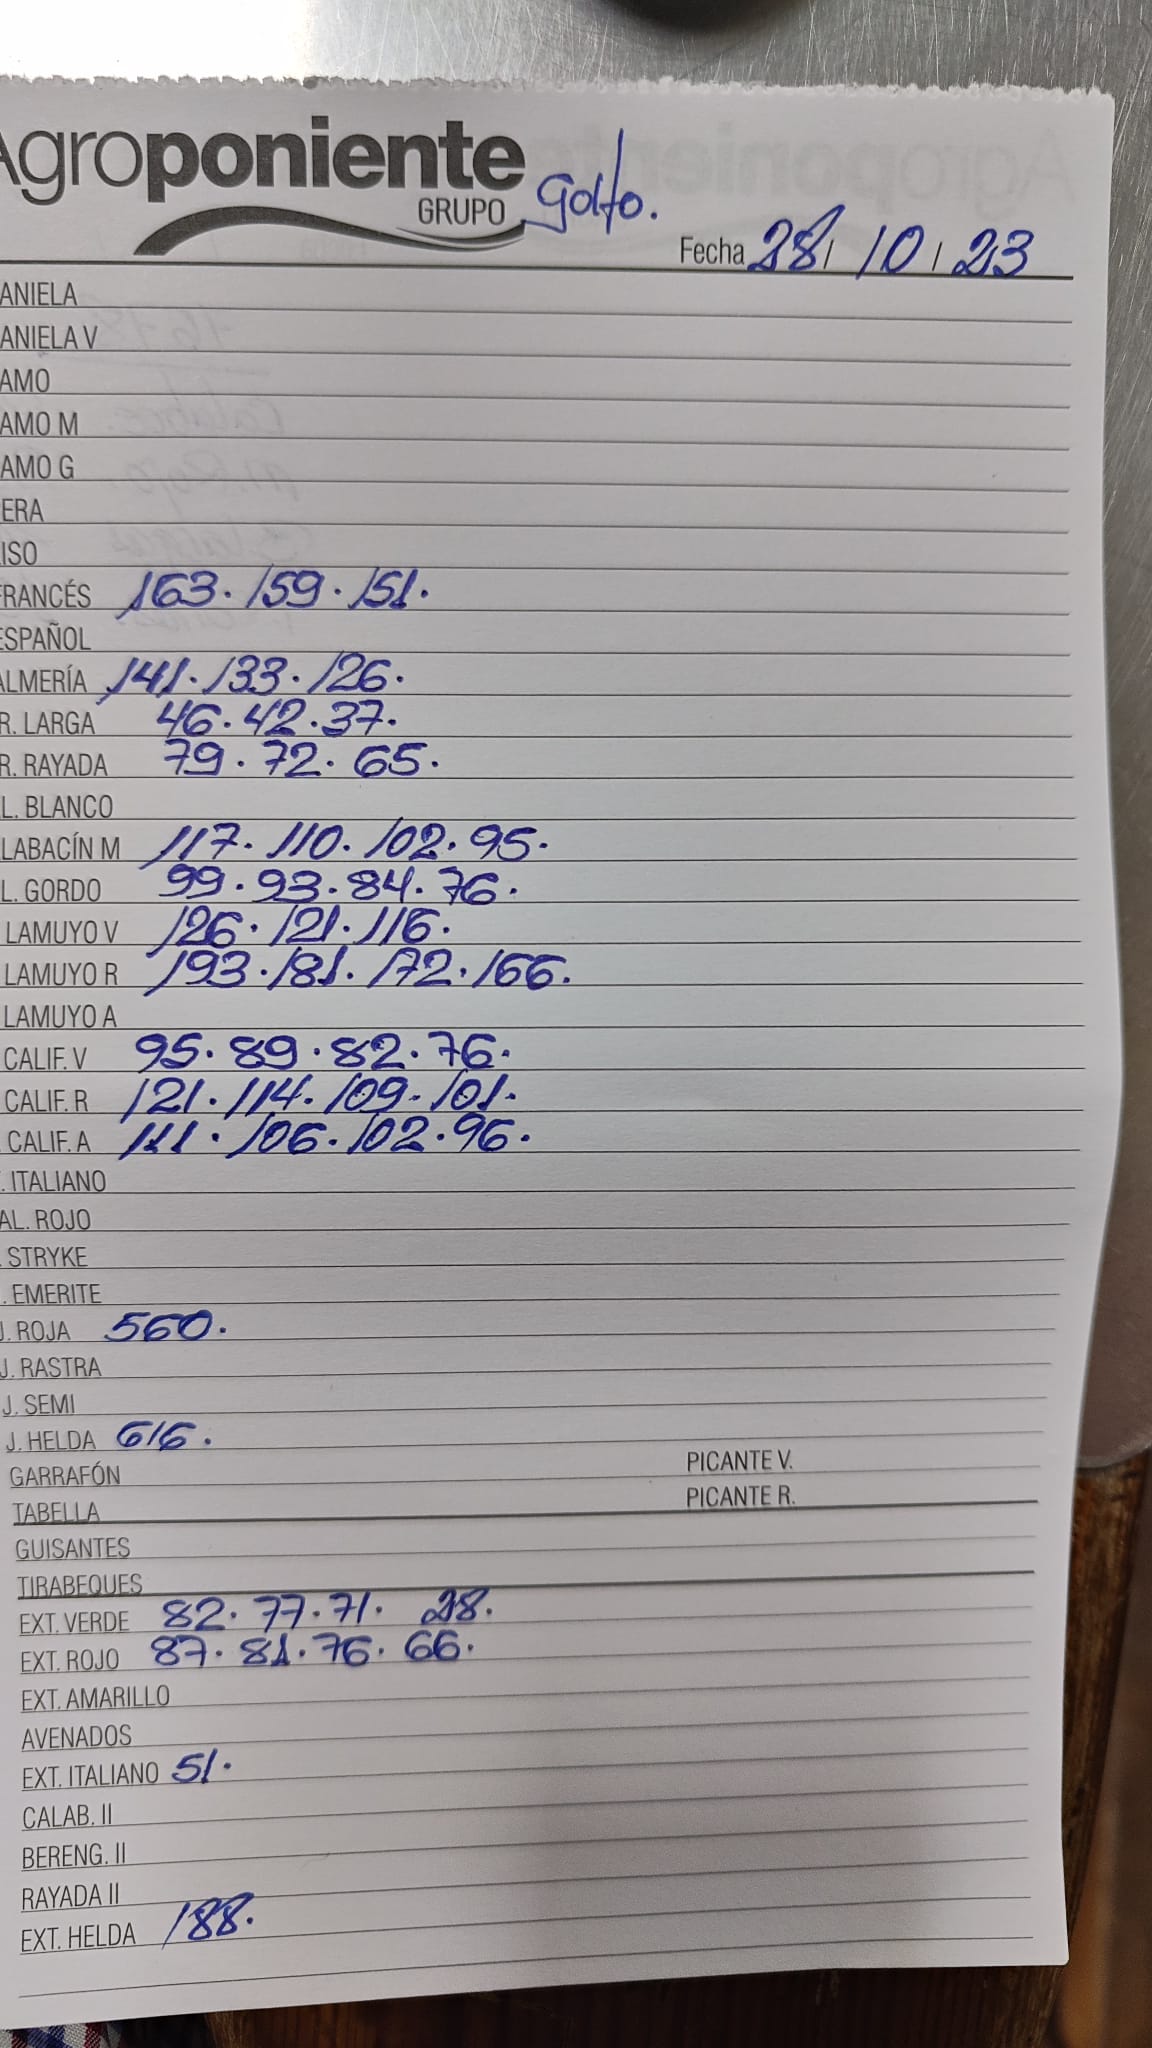 Agroponiente
GRUPO
Golfo.
Fecha 28 / 10 / 23
ANIELA
ANIELA V
AMO
AMO M
AMO G
ERA
ISO
FRANCÉS 163. 159. 151.
ESPAÑOL
ALMERÍA 141. 133. 126.
R. LARGA 46. 42. 37.
R. RAYADA 79. 72. 65.
L. BLANCO
LABACÍN M 117. 110. 102. 95.
L. GORDO 99. 93. 84. 76.
LAMUYO V 126. 121. 116.
LAMUYO R 193. 181. 172. 166.
LAMUYO A
CALIF. V 95. 89. 82. 76.
CALIF. R 121. 114. 109. 101.
CALIF. A 111. 106. 102. 96.
. ITALIANO
AL. ROJO
. STRYKE
. EMERITE
J. ROJA 560.
J. RASTRA
J. SEMI
J. HELDA 616.
GARRAFÓN PICANTE V.
TABELLA PICANTE R.
GUISANTES
TIRABEQUES
EXT. VERDE 82. 77. 71. 28.
EXT. ROJO 87. 81. 76. 66.
EXT. AMARILLO
AVENADOS
EXT. ITALIANO 51.
CALAB. II
BERENG. II
RAYADA II
EXT. HELDA 188.